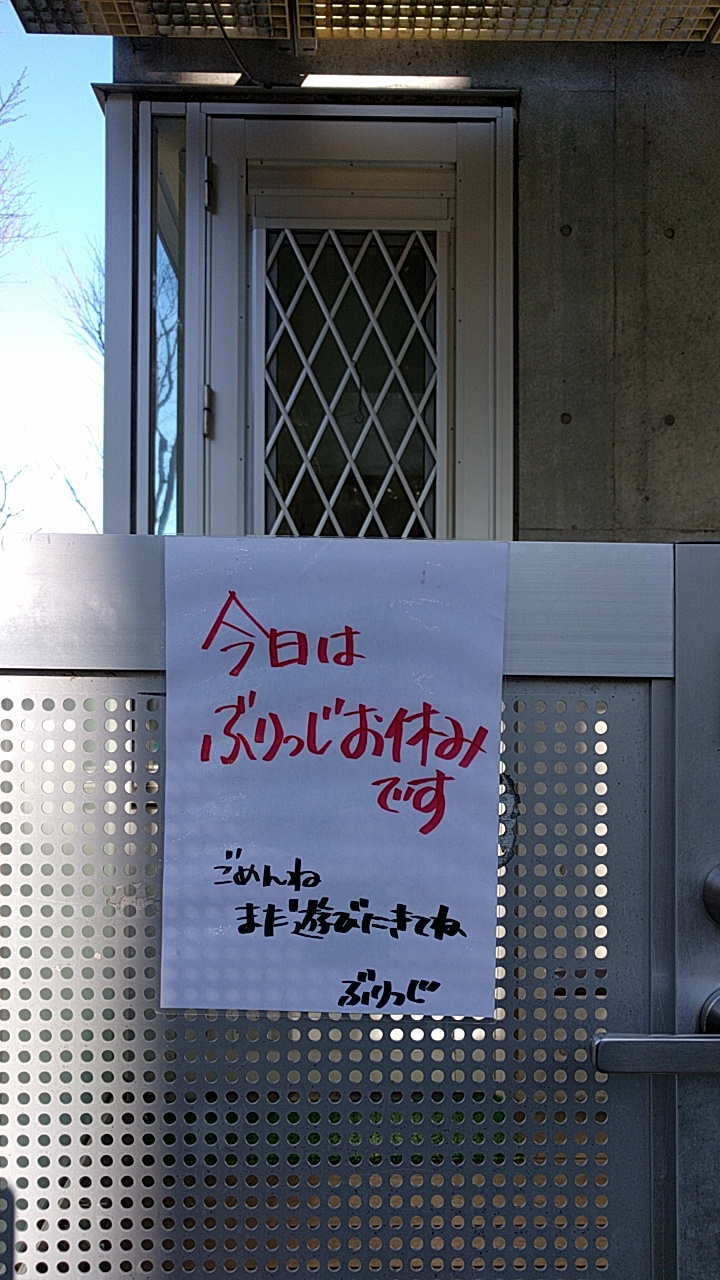 今日は
ぶりっじお休み
です
ごめんね
また遊びにきてね
ぶりっじ